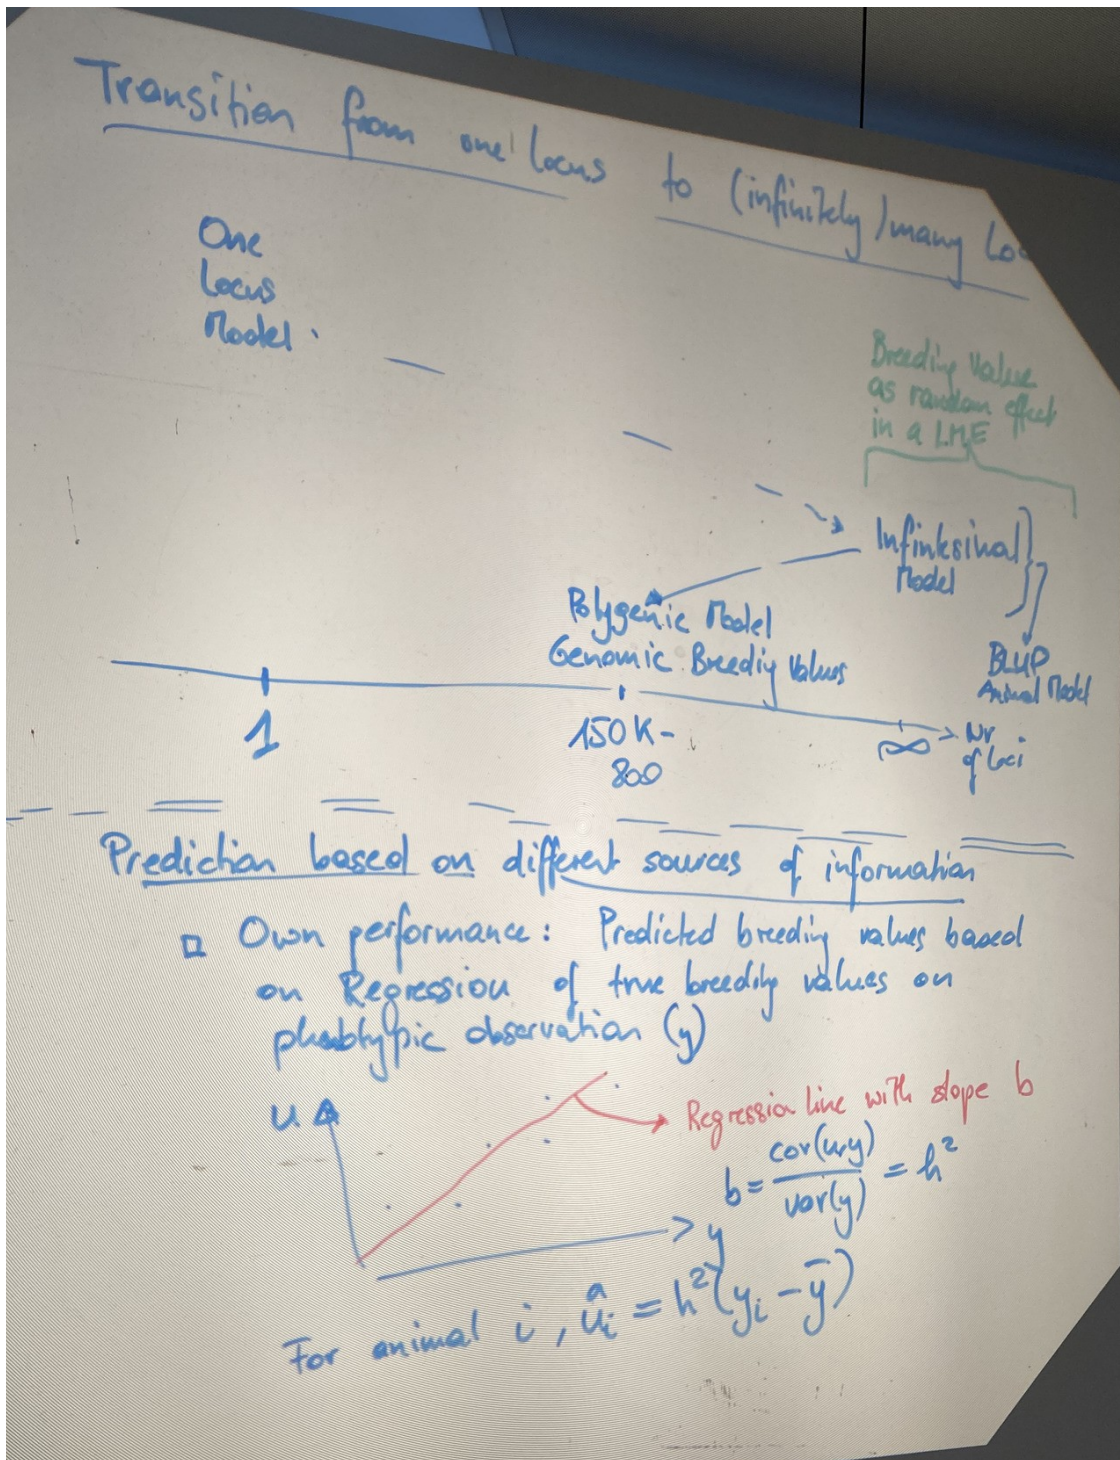 Transition from one locus to (infinitely) many Loc
One
Locus
Model
Breeding Value
as random effect
in a LME
Infinitesimal
Model
Polygenic Model
Genomic Breeding Values
BLUP
Animal Model
1
150K-
800
∞
Nr
of loci
Prediction based on different sources of information
Own performance: Predicted breeding values based
on Regression of true breeding values on
phenotypic observation (y)
u
Regression line with slope b
b = cov(u,y) / var(y) = h²
y
For animal i, ûᵢ = h²(yᵢ - ȳ)